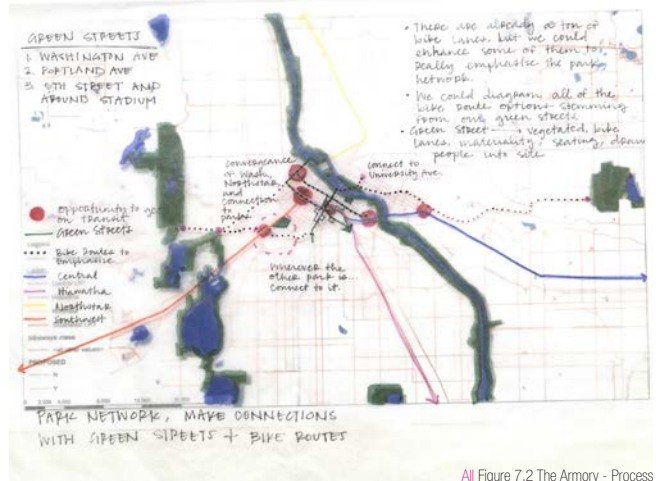 GREEN STREETS
1. WASHINGTON AVE
2. PORTLAND AVE
3. 5TH STREET AND
AROUND STADIUM
• There are already a ton of
bike lanes, but we could
enhance some of them to
really emphasize the park
network.
• We could diagram all of the
bike route options stemming
from our green streets
• Green Street → vegetated, bike
lanes, materiality, seating, draw
people into side
Convergence
of Wash,
Northstar,
and
connection
to
parks
connect to
University Ave.
Wherever the
other park is...
connect to it.
Opportunity to get
on transit
Green Streets
Legend
Bike Routes to
Emphasize
Central
Hiawatha
Northstar
Southwest
PROPOSED
N
Y
PARK NETWORK, MAKE CONNECTIONS
WITH GREEN STREETS + BIKE ROUTES
All Figure 7.2 The Armory - Process